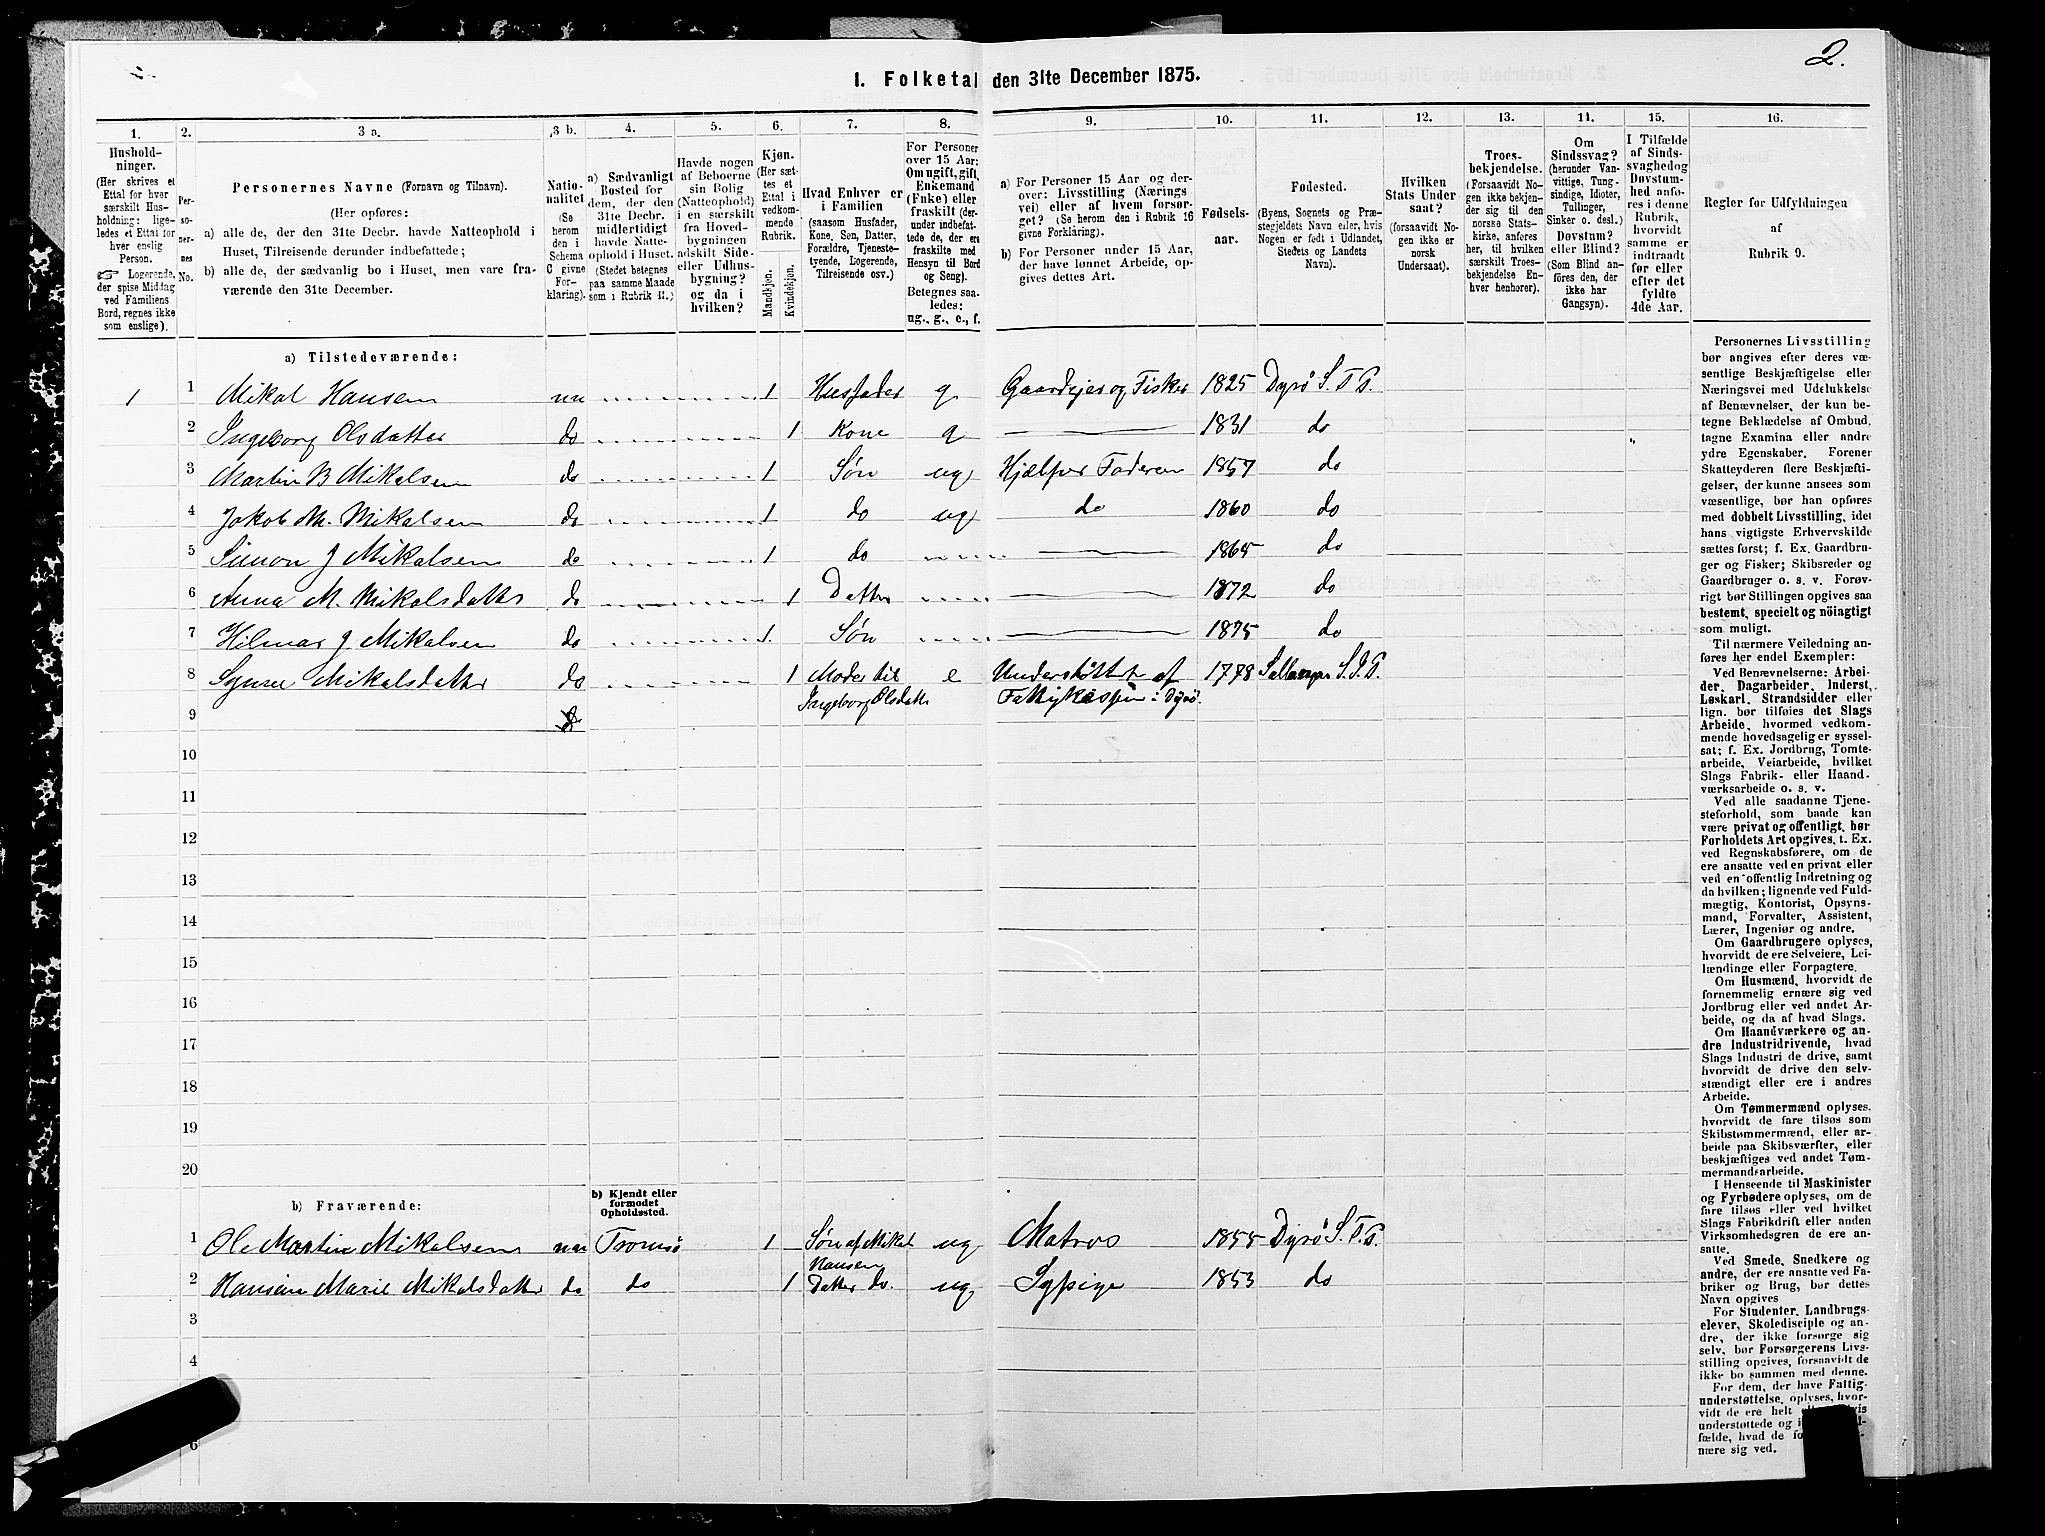 2.
1. Folketal den 31te December 1875.
1. 2. 3 a. 3 b. 4. 5. 6. 7. 8. 9. 10. 11. 12. 13. 14. 15. 16.
Hushold-
ninger.
(Her skrives et
Ettal for hver
særskilt Hus-
holdning; lige-
ledes et Ettal for
hver enslig
Person.
☞ Logerende,
der spise Middag
ved Familiens
Bord, regnes ikke
som enslige).
Per-
so-
ner-
nes
No.
Personernes Navne (Fornavn og Tilnavn).
(Her opføres:
a) alle de, der den 31te Decbr. havde Natteophold i
Huset, Tilreisende derunder indbefattede;
b) alle de, der sædvanlig bo i Huset, men vare fra-
værende den 31te December.
Natio-
nalitet
(Se
herom
den i
Schema
C givne
For-
klaring).
a) Sædvanligt
Bosted for
dem, der den
31te Decbr.
midlertidigt
havde Natte-
ophold i Huset.
(Stedet betegnes
paa samme Maade
som i Rubrik 11.)
Havde nogen
af Beboerne
sin Bolig
(Natteophold)
i en særskilt
fra Hoved-
bygningen
adskilt Side-
eller Udhus-
bygning?
og da i
hvilken?
Kjøn.
(Her sæt-
tes et
Ettal i
vedkom-
mende
Rubrik.
Mandkjøn.
Kvindekjøn.
Hvad Enhver er
i Familien
(saasom Husfader,
Kone, Søn, Datter,
Forældre, Tjeneste-
tyende, Logerende,
Tilreisende osv.)
For Personer
over 15 Aar:
Om ugift, gift,
Enkemand
(Enke) eller
fraskilt (der-
under indbefat-
tede de, der ere
fraskilte med
Hensyn til Bord
og Seng).
Betegnes saa-
ledes:
ug., g., e., f.
a) For Personer 15 Aar og der-
over: Livsstilling (Nærings
vei) eller af hvem forsør-
get? (Se herom den i Rubrik 16
givne Forklaring).
b) For Personer under 15 Aar,
der have lønnet Arbeide, op-
gives dettes Art.
Fødsels-
aar.
Fødested.
(Byens, Sognets og Præ-
stegjeldets Navn eller, hvis
Nogen er født i Udlandet,
Stedets og Landets
Navn).
Hvilken
Stats Under
saat?
(forsaavidt No-
gen ikke er
norsk
Undersaat).
Troes-
bekjendelse.
(Forsaavidt No-
gen ikke bekjen-
der sig til den
norske Stats-
kirke, anføres
her, til hvilken
særskilt Troes-
bekjendelse En-
hver henhører).
Om
Sindssvag?
(herunder Van-
vittige, Tung-
sindige, Idioter,
Tullinger,
Sinker o. desl.)
Døvstum?
eller Blind?
(Som Blind an-
føres den, der
ikke har
Gangsyn).
I Tilfælde
af Sinds-
svaghed og
Døvstum-
hed anfø-
res i denne
Rubrik,
hvorvidt
samme er
indtraadt
før eller
efter det
fyldte
4de Aar.
Regler for Udfyldningen
af
Rubrik 9.
a) Tilstedeværende:
1 1 Mikal Hansen nn 1 Husfader g Gaardejer og Fisker 1825 Dyrö S. T. P.
2 Ingeborg Olsdatter do 1 Kone g 1831 do
3 Martin B Mikalsen do 1 Søn ug Hjælper Faderen 1857 do
4 Jakob M. Mikalsen do 1 do ug do 1860 do
5 Simon J Mikalsen do 1 do 1865 do
6 Anna M. Mikalsdatter do 1 Datter 1872 do
7 Hilmar J Mikalsen do 1 Søn 1875 do
8 Mikalsdatter do 1 Moder til e Understöttet af 1778 S. P.
Ingeborg Olsdatter Fattigkassen i Dyrö.
9
10
11
12
13
14
15
16
17
18
19
20
b) Fraværende:
b) Kjendt eller
formodet
Opholdssted.
1 Ole Martin Mikalsen nn Tromsö 1 Søn af Mikal ug Matros 1855 Dyrö S. T. P.
Hansen
2 Hansine Marie Mikalsdatter do do 1 Datter do. ug Sypige 1853 do
3
4
6
Personernes Livsstilling
bør angives efter deres væ-
sentlige Beskjæftigelse eller
Næringsvei med Udelukkelse
af Benævnelser, der kun be-
tegne Beklædelse af Ombud,
tagne Examina eller andre
ydre Egenskaber. Forener
Skatteyderen flere Beskjæfti-
gelser, der kunne ansees som
væsentlige, bør han opføres
med dobbelt Livsstilling, idet
hans vigtigste Erhvervskilde
sættes først; f. Ex. Gaardbru-
ger og Fisker; Skibsreder og
Gaardbruger o. s. v. Forøv-
rigt bør Stillingen opgives saa
bestemt, specielt og nöiagtigt
som muligt.
Til nærmere Veiledning an-
føres her endel Exempler:
Ved Benævnelserne: Arbei-
der, Dagarbeider, Inderst,
Løskarl, Strandsidder eller
lign. bør tilføies det Slags
Arbeide, hvormed vedkom-
mende hovedsagelig er syssel-
sat; f. Ex. Jordbrug, Tomte-
arbeide, Veiarbeide, hvilket
Slags Fabrik- eller Haand-
værksarbeide o. s. v.
Ved alle saadanne Tjene-
steforhold, som baade kan
være privat og offentligt, bør
Forholdets Art opgives, t. Ex.
ved Regnskabsførere, om de
ere ansatte ved en privat eller
ved en offentlig Indretning og
da hvilken; lignende ved Fuld-
mægtig, Kontorist, Opsyns-
mand, Forvalter, Assistent,
Lærer, Ingeniør og andre.
Om Gaardbrugere oplyses,
hvorvidt de ere Selveiere, Lei-
lændinge eller Forpagtere.
Om Husmænd, hvorvidt de
fornemmelig ernære sig ved
Jordbrug eller ved andet Ar-
beide, og da af hvad Slags.
Om Haandværkere og an-
dre Industridrivende, hvad
Slags Industri de drive, samt
hvorvidt de drive den selv-
stændigt eller ere i andres
Arbeide.
Om Tømmermænd oplyses,
hvorvidt de fare tilsøs som
Skibstømmermænd, eller ar-
beide paa Skibsværfter, eller
beskjæftiges ved andet Tøm-
mermandsarbeide.
I Henseende til Maskinister
og Fyrbødere oplyses, om de
fare tilsøs eller ved hvilket
Slags Fabrikdrift eller anden
Virksomhedsgren de ere an-
satte.
Ved Smede, Snedkere og
andre, der ere ansatte ved Fa-
briker og Brug, bør dettes
Navn opgives
For Studenter, Landbrugs-
elever, Skoledisciple og an-
dre, der ikke forsørge sig
selv, bør Forsørgerens Livs-
stilling opgives, forsaavidt de
ikke bo sammen med denne.
For dem, der have Fattig-
understøttelse, oplyses, hvor-
vidt de ere helt
understøttede og i
fælde, hvad de
nære sig ved.